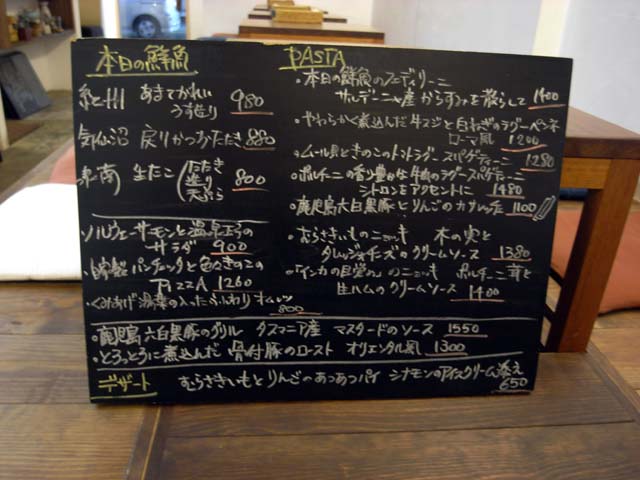 本日の鮮魚
糸島 あまてがれい
うす造り 980
気仙沼 戻りかつおたたき 880
生たこ
たたき
造り
天ぷら
800
ノルウェーサーモンと温泉玉子の
サラダ 900
自家製パンチェッタと色々きのこの
PIZZA 1260
くみあげ湯葉の入ったふんわりオムレツ
800
PASTA
・本日の鮮魚のフェデリーニ
サルデーニャ産からすみを散らして 1400
・やわらかく煮込んだ牛スジと白ねぎのラグーペンネ
ローマ風 1200
・ムール貝ときのこのトマトラグースパゲティーニ 1280
・ポルチーニの香り豊かな牛肉のラグースパゲティーニ
シトロンをアクセントに 1480
・鹿児島六白黒豚とりんごのカサレッチェ 1100
・むらさきいものニョッキ 木の実と
タレッジョチーズのクリームソース 1380
・「インカの目覚め」のニョッキ ポルチーニ茸と
生ハムのクリームソース 1400
・鹿児島六白黒豚のグリル タスマニア産 マスタードのソース 1550
・とろっとろに煮込んだ 骨付豚のロースト オリエンタル風 1300
デザート むらさきいもとりんごのあつあつパイ シナモンのアイスクリーム添え
650